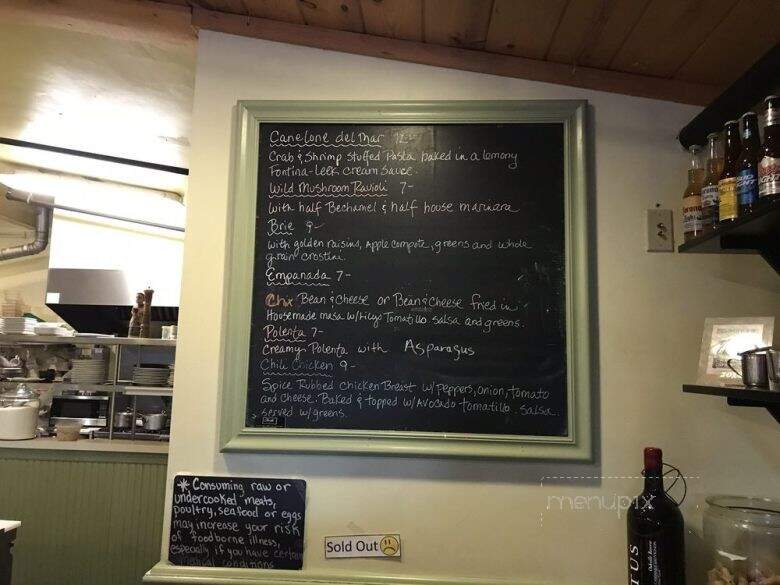 Canelone del Mar 12-
Crab & Shrimp Stuffed Pasta baked in a lemony
Fontina-Leek Cream Sauce.
Wild Mushroom Ravioli 7-
with half Bechamel & half house marinara
Brie 9-
with golden raisins, Apple Compote, greens and whole
grain crostini.
Empanada 7-
Chx Bean & cheese or Bean & cheese fried in
Housemade masa w/ Tomatillo salsa and greens.
Polenta 7-
Creamy Polenta with Asparagus
Chili Chicken 9-
Spice Rubbed chicken Breast w/ Peppers, onion, tomato
and cheese. Baked & topped w/ Avocado tomatillo salsa.
served w/ greens.
* Consuming raw or
undercooked meats,
poultry, seafood or eggs
may increase your risk
of foodborne illness,
especially if you have certain
medical conditions
Sold Out
menupix